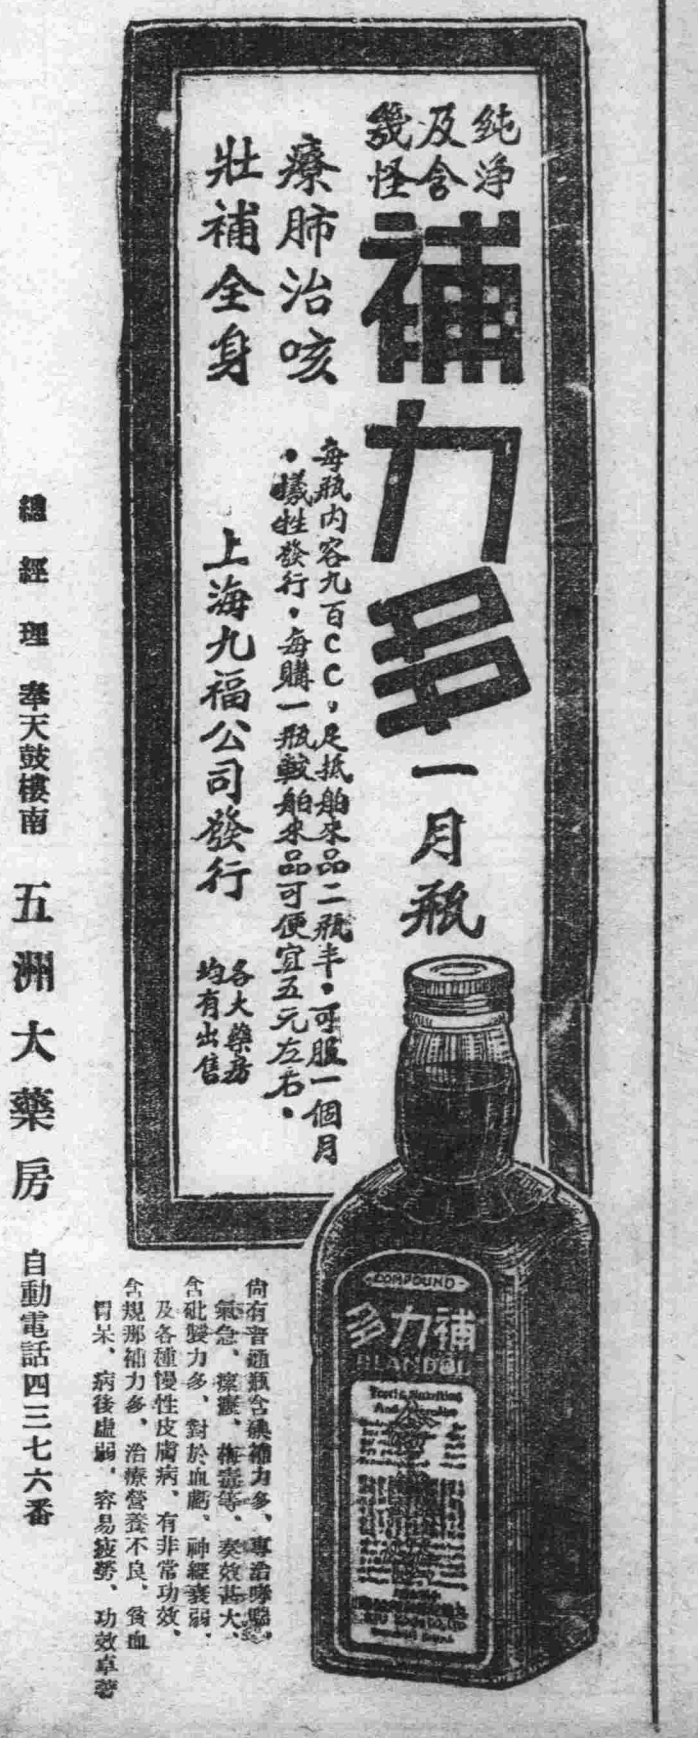 純淨
及含
幾怪
補力多
一月瓶
療肺治咳
壯補全身
每瓶内容九百CC，足抵舶來品二瓶半，可服一個月
，犧牲發行，每購一瓶較舶來品可便宜五元左右。
上海九福公司發行
各大藥房
均有出售
COMPOUND
補力多
BLANDOL
尚有普通瓶含碘補力多、專治哮喘、
氣急、瘰癧、梅毒等、奏效甚大、
含砒製力多、對於血虧、神經衰弱、
及各種慢性皮膚病、有非常功效、
含規那補力多、治療營養不良、貧血
胃呆、病後虛弱、容易疲勞、功效卓著
總經理 奉天鼓樓南 五洲大藥房 自動電話四三七六番